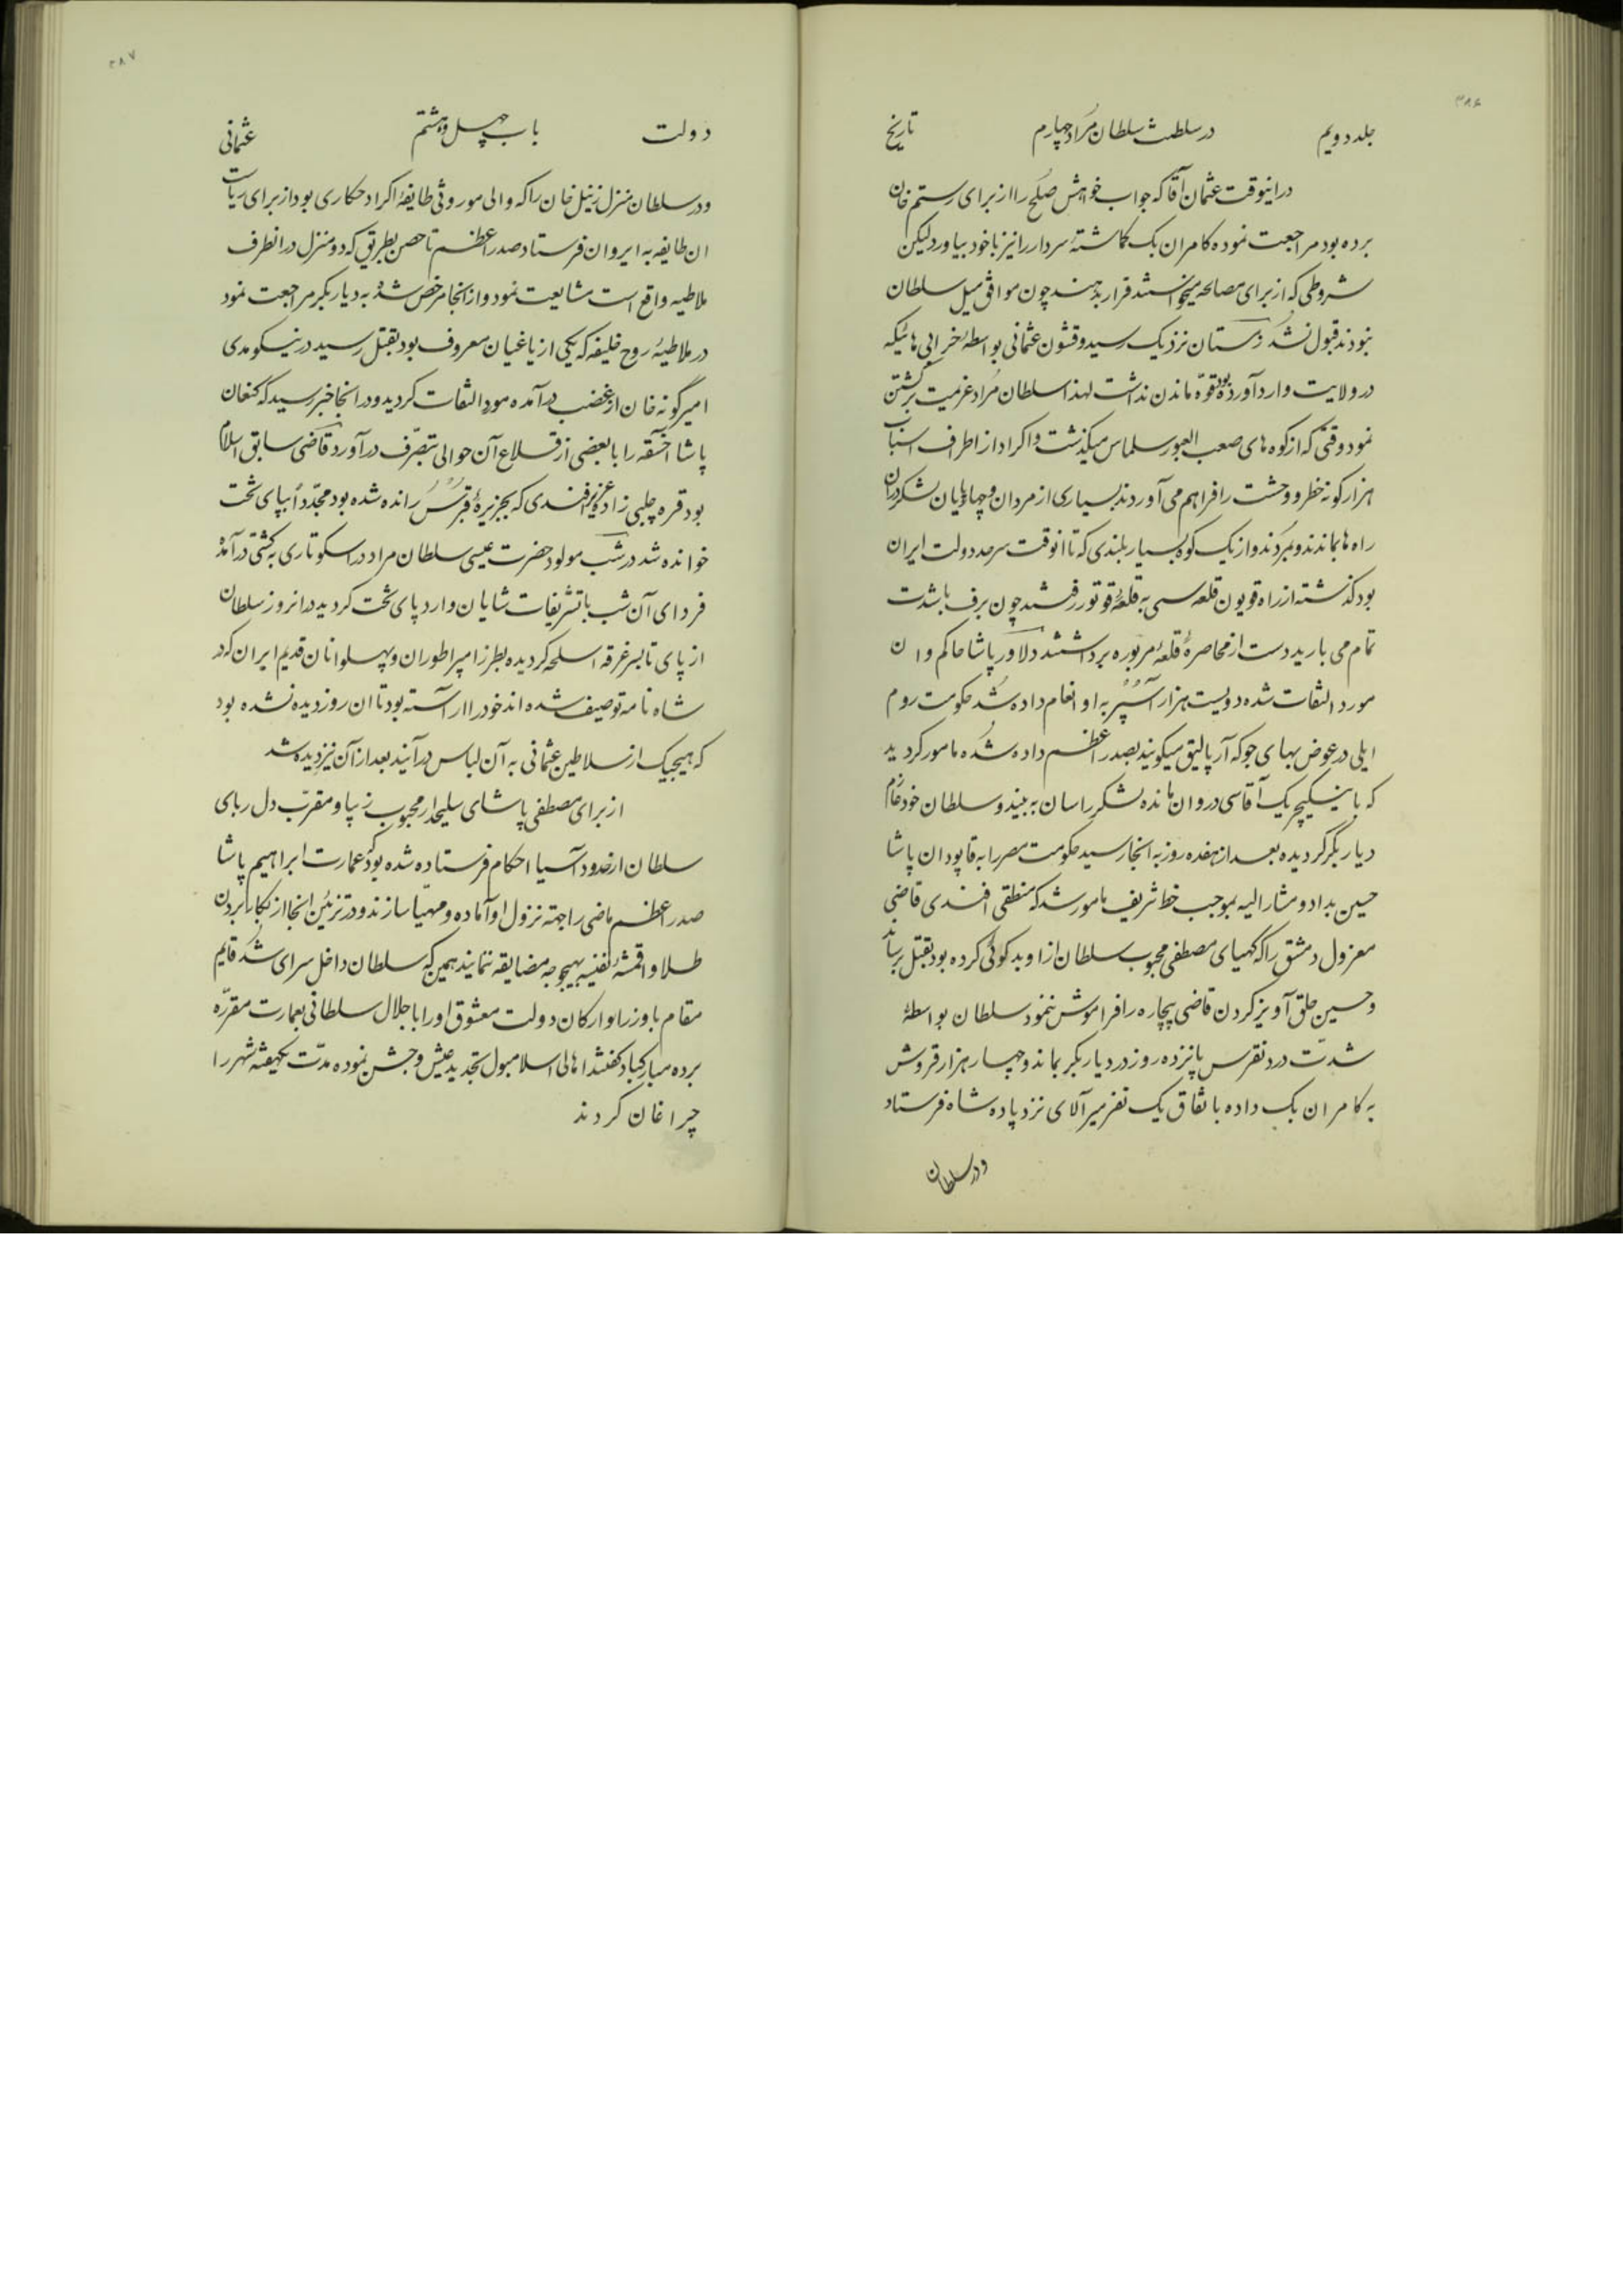 ۳۸۶
جلد دویم در سلطنت سلطان مراد چهارم تاریخ
درانیوقت عثمان آقا که جواب خواهش صلح را از برای رستم خان
برده بود مراجعت نموده کامران بک گماشتهٔ سردار را نیز با خود بیاورد لیکن
شروطی که از برای مصالحه میخواستند قرار بدهند چون موافق میل سلطان
نبودند قبول نشد زمستان نزدیک رسید و قشون عثمانی بواسطهٔ خرابی هائیکه
در ولایت وارد آورده بود قوّه ماندن نداشت لهذا سلطان مراد عزیمت برگشتن
نمود وقتی که از کوه های صعب العبور سلماس میگذشت و اکراد از اطراف اسباب
هزار گونه خطر و وحشت را فراهم می آوردند بسیاری از مردان و چهارپایان لشکر دران
راه ها بماندند و بمردند و از یک کوه بسیار بلندی که تا انوقت سرحد دولت ایران
بود گذشته از راه قویون قلعه سی به قلعهٔ قوتور رفتند چون برف باشدت
تمام می بارید دست از محاصرهٔ قلعهٔ مزبوره برداشتند دلاور پاشا حاکم وان
مورد التفات شده دویست هزار آسپر به او انعام داده شد حکومت روم
ایلی در عوض بهای جو که آرپالیق میگویند بصدر اعظم داده شده مامور گردید
که با ینگیچریک آقاسی در وان مانده لشکر را سان به بیند و سلطان خود عازم
دیاربکر گردیده بعد از هفده روز به انجا رسید حکومت مصر را به قاپودان پاشا
حسین بداد و مشارالیه بموجب خط شریف مامور شد که منطقی افندی قاضی
معزول دمشق را که کهیای مصطفی محبوب سلطان از او بد گوئی کرده بود بقتل برساند
و حسین حلق آویز کردن قاضی بیچاره را فراموش ننمود سلطان بواسطهٔ
شدّت درد نقرس پانزده روز در دیاربکر بماند و چهار هزار قروش
به کامران بک داده باتفاق یک نفر میرآلای نزد پادشاه فرستاد
ودر سلطان
۳۸۷
دولت باب چهل و هشتم عثمانی
ودر سلطان منزل زنیل خان را که والی موروثی طایفهٔ اکراد حکاری بود از برای ریاست
ان طایفه به ایروان فرستاد صدر اعظم تا حصن بطریق که دو منزل درانطرف
ملاطیه واقع است مشایعت نمود و از انجا مرخص شده به دیاربکر مراجعت نمود
در ملاطیهٔ روح خلیفه که یکی از یاغیان معروف بود بقتل رسید در نیکومدی
امیرگونه خان از غضب درآمده مورد التفات گردید و در انجا خبر رسید که کنعان
پاشا اخسقه را با بعضی از قلاع آن حوالی بتصرّف درآورد قاضی سابق اسلام
بود قره چلبی زاده عزیز افندی که بجزیرهٔ قبرس رانده شده بود مجدّداً بپای تخت
خوانده شد در شب مولود حضرت عیسی سلطان مراد در اسکوتاری به کشتی درآمده
فردای آن شب با تشریفات شایان وارد پای تخت گردید درانروز سلطان
از پای تا بسر غرقه اسلحه گردیده بطرز امپراطوران و پهلوانان قدیم ایران که در
شاه نامه توصیف شده اند خود را اراسته بود تا ان روز دیده نشده بود
که هیچیک از سلاطین عثمانی به آن لباس درآیند بعد از آن نیز دیده نشد
از برای مصطفی پاشای سلیحدار محبوب زیبا و مقرّب دل ربای
سلطان از حدود آسیا احکام فرستاده شده بود که عمارت ابراهیم پاشا
صدر اعظم ماضی را جهة نزول او آماده و مهیّا سازند و در تزئین انجا از بکار بردن
طلا و اقمشهٔ نفیسه بهیچوجه مضایقه ننمایند همین که سلطان داخل سرای شد قایم
مقام با وزراء و ارکان دولت معشوق او را با جلال سلطانی بعمارت مقرّره
برده مبارکباد گفتند اهالی اسلامبول تجدید عیش و جشن نموده مدّت یکهفته شهر را
چراغان کردند